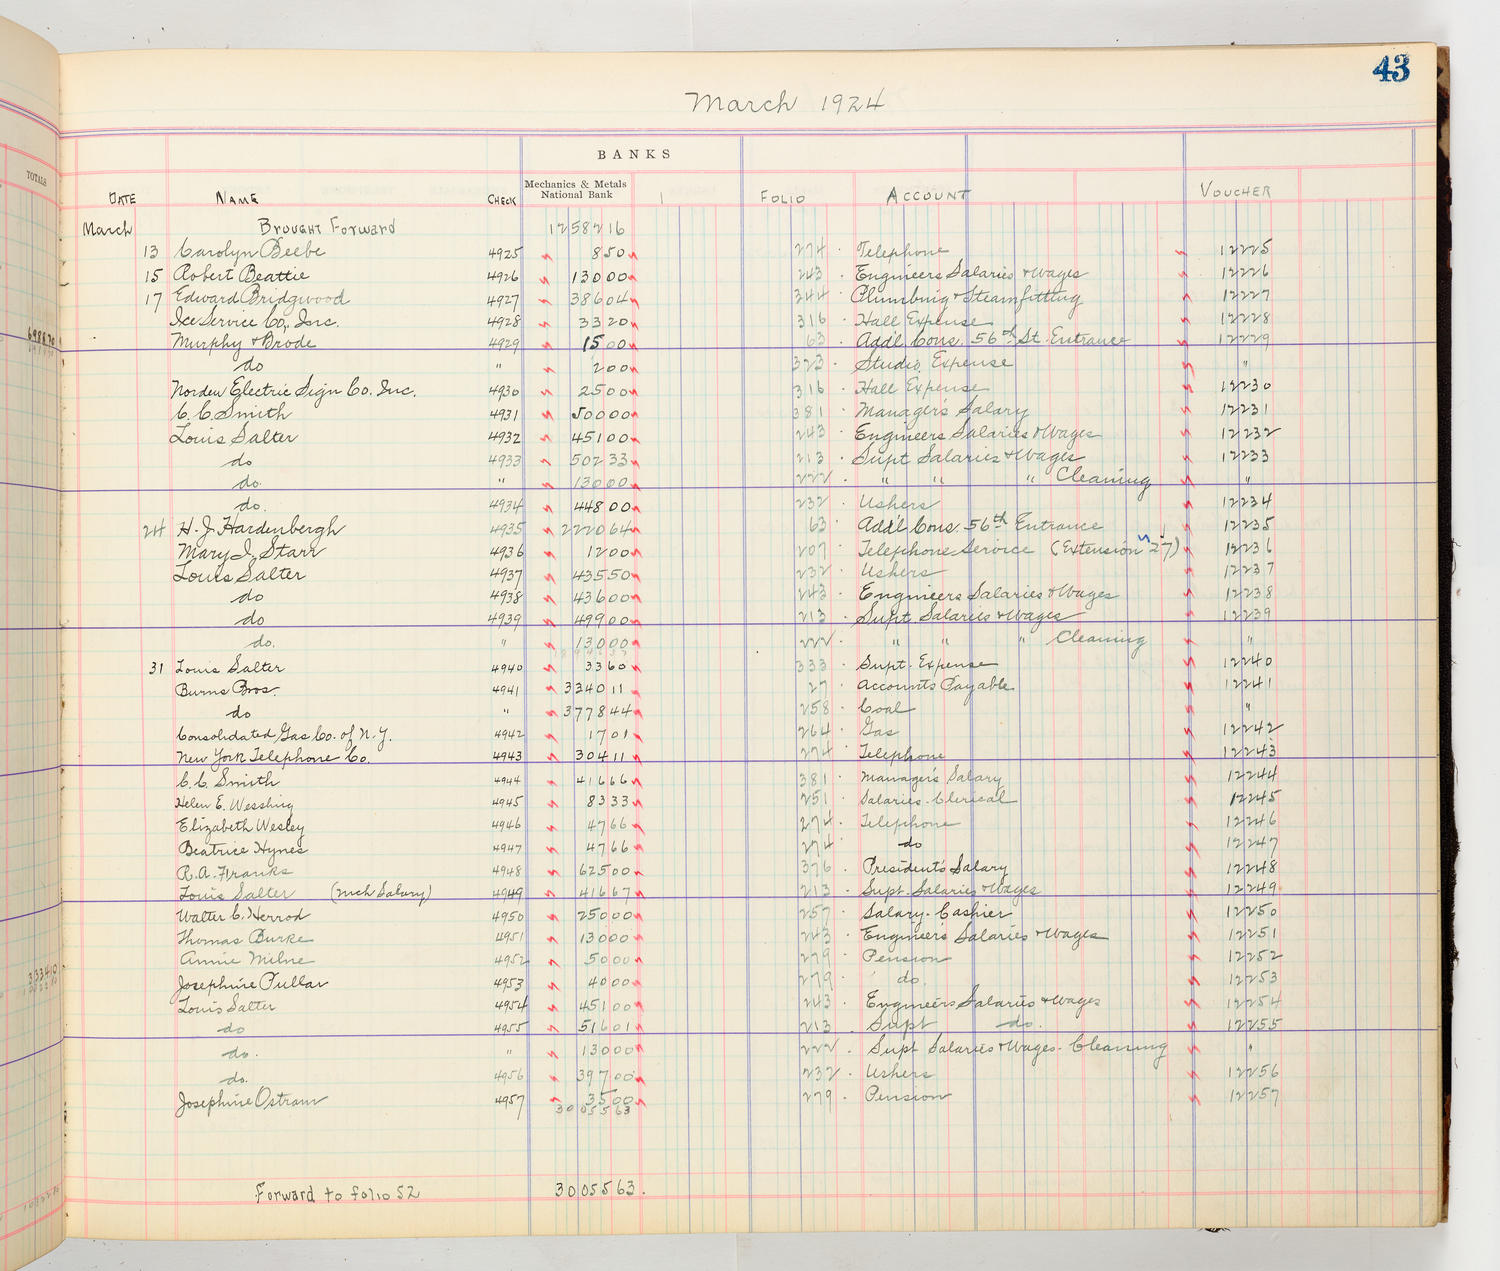 43
March 1924
BANKS
TOTALS
DATE NAME CHECK Mechanics & Metals National Bank FOLIO ACCOUNT VOUCHER
March Brought Forward 12582 16
13 Carolyn Beebe 4925 8 50 274 Telephone 12225
15 Robert Beattie 4926 130 00 243 Engineers Salaries & Wages 12226
17 Edward Bridgwood 4927 386 04 344 Plumbing & Steamfitting 12227
Ice Service Co., Inc. 4928 33 20 316 Hall Expense 12228
Murphy & Brode 4929 15 00 63 Add'l Cons. 56th St. Entrance 12229
do " 2 00 323 Studio Expense "
Norden Electric Sign Co. Inc. 4930 25 00 316 Hall Expense 12230
C. C. Smith 4931 500 00 381 Manager's Salary 12231
Louis Salter 4932 451 00 243 Engineers Salaries & Wages 12232
do 4933 502 33 213 Supt Salaries & Wages 12233
do. " 130 00 222 " " " Cleaning "
do. 4934 448 00 232 Ushers 12234
24 H. J. Hardenbergh 4935 2220 64 63 Add'l Cons. 56th Entrance 12235
Mary I. Starr 4936 12 00 207 Telephone Service (Extension "27) 12236
Louis Salter 4937 435 50 232 Ushers 12237
do 4938 436 00 243 Engineers Salaries & Wages 12238
do 4939 499 00 213 Supt. Salaries & Wages 12239
do. " 130 00 222 " " " Cleaning "
31 Louis Salter 4940 33 60 333 Supt. Expense 12240
Burns Bros. 4941 3340 11 27 Accounts Payable 12241
do " 3778 44 258 Coal "
Consolidated Gas Co. of N.Y. 4942 17 01 264 Gas 12242
New York Telephone Co. 4943 304 11 274 Telephone 12243
C. C. Smith 4944 416 66 381 Manager's Salary 12244
Helen E. Wesshing 4945 83 33 251 Salaries-Clerical 12245
Elizabeth Wesley 4946 47 66 274 Telephone 12246
Beatrice Hynes 4947 47 66 274 do 12247
R. A. Franks 4948 625 00 376 President's Salary 12248
Louis Salter (Mch Salary) 4949 416 67 213 Supt. Salaries & Wages 12249
Walter C. Herrod 4950 250 00 257 Salary-Cashier 12250
Thomas Burke 4951 130 00 243 Engineer's Salaries & Wages 12251
Annie Milne 4952 50 00 279 Pension 12252
Josephine Pullar 4953 40 00 279 do. 12253
Louis Salter 4954 451 00 243 Engineers Salaries & Wages 12254
do 4955 516 01 213 Supt do. 12255
do. " 130 00 222 Supt Salaries & Wages-Cleaning "
do. 4956 397 00 232 Ushers 12256
Josephine Ostram 4957 35 00 279 Pension 12257
30055 63
Forward to folio 52 30055 63.